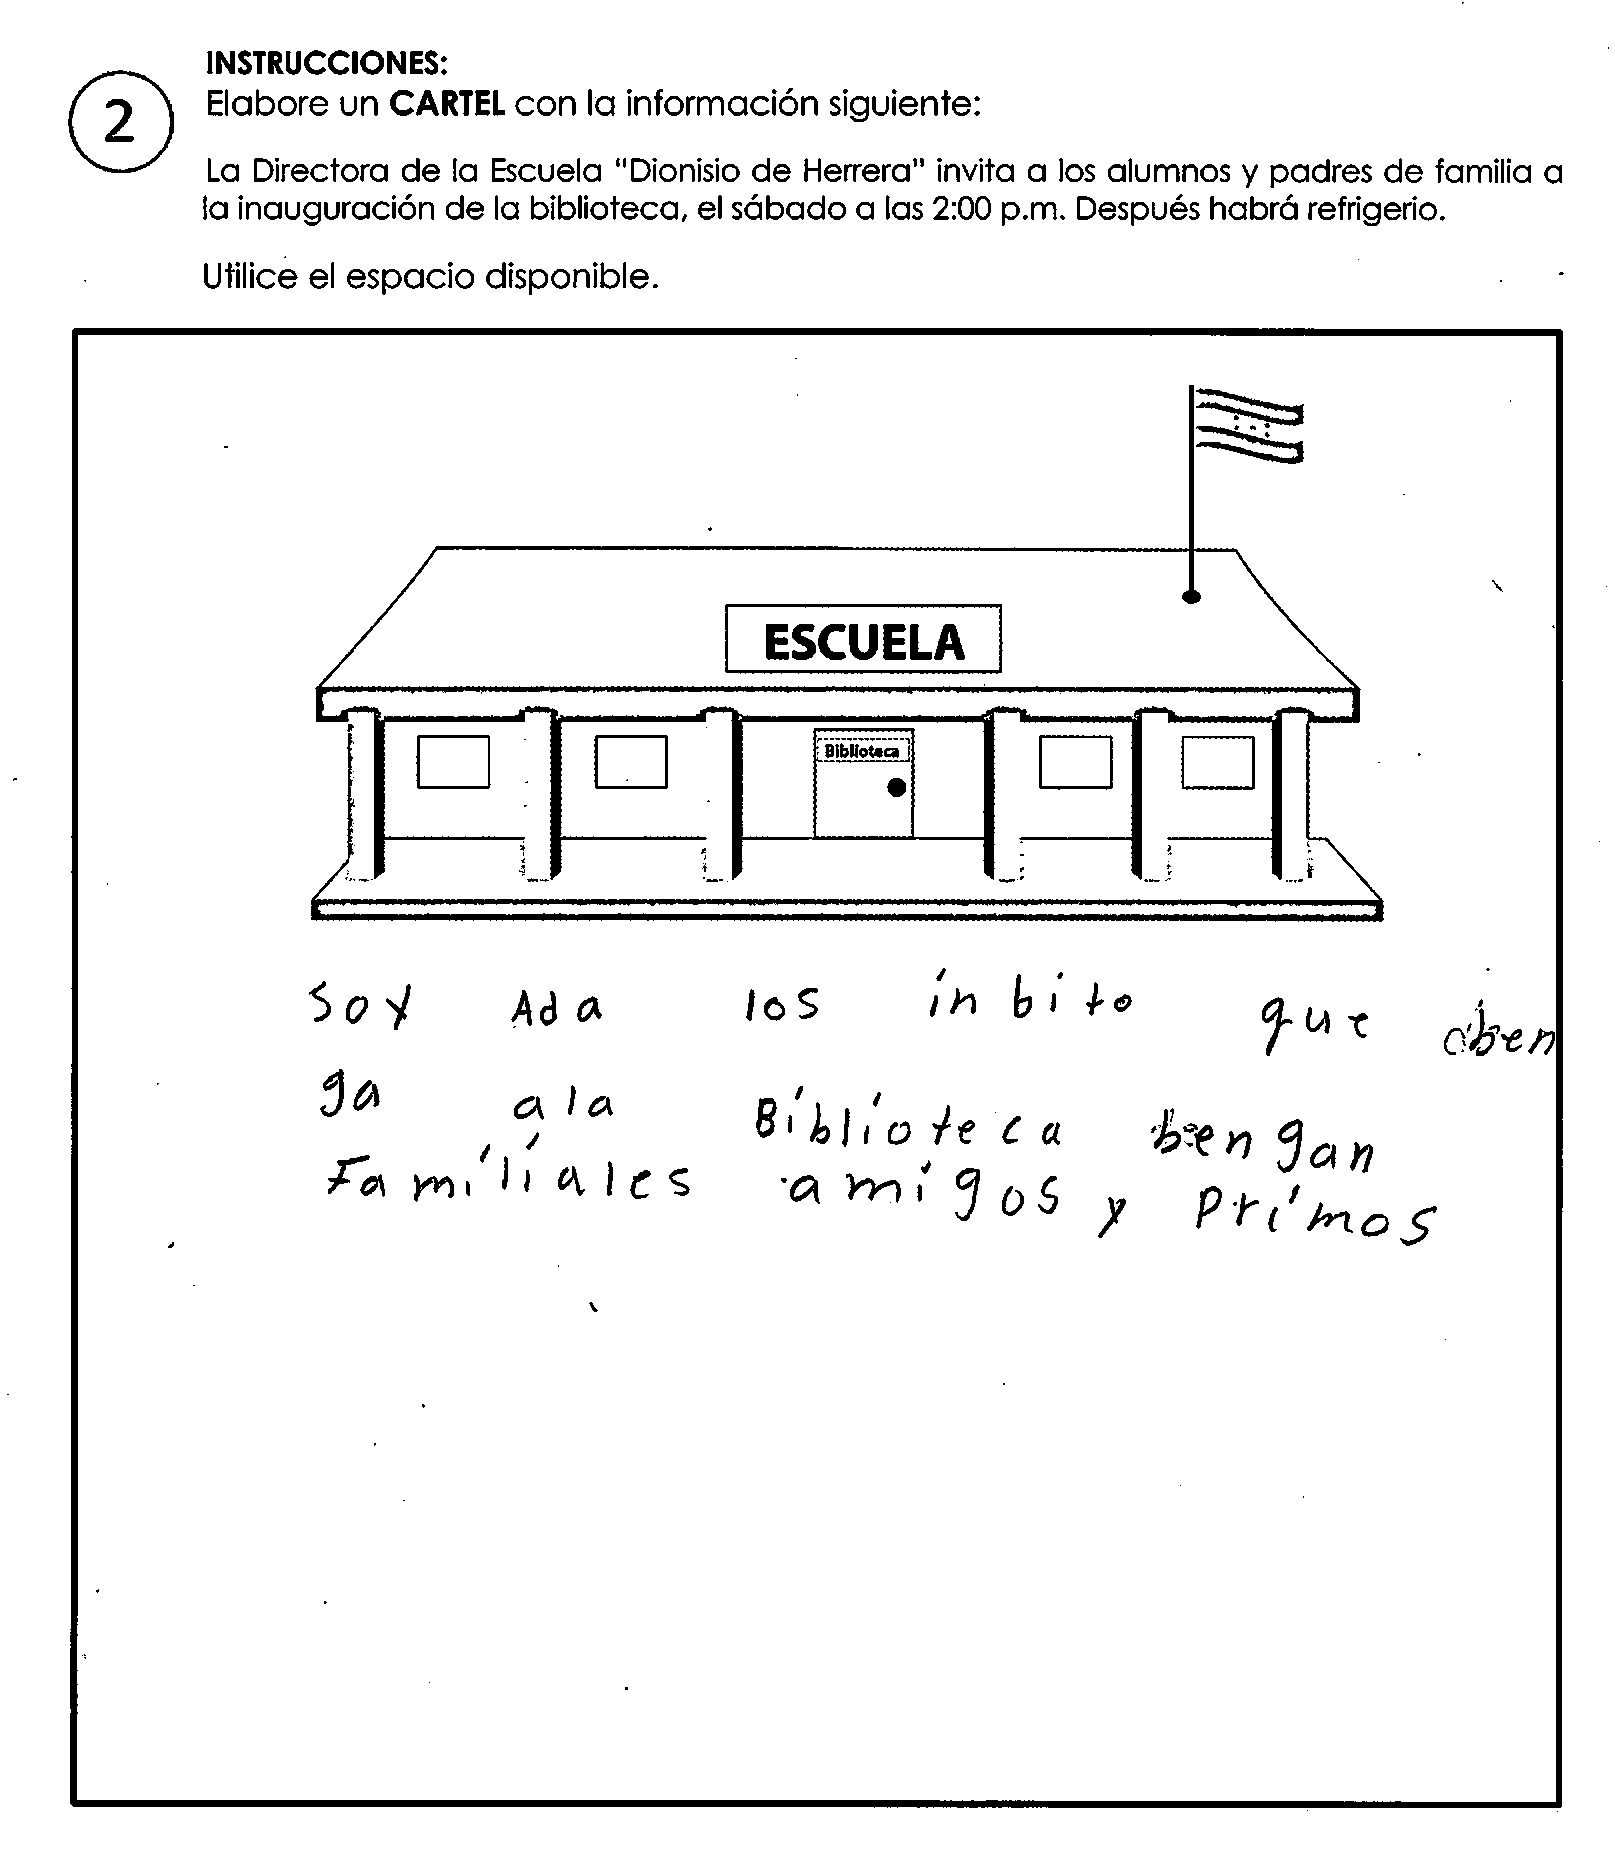 INSTRUCCIONES:
2
Elabore un CARTEL con la información siguiente:
La Directora de la Escuela "Dionisio de Herrera" invita a los alumnos y padres de familia a
la inauguración de la biblioteca, el sábado a las 2:00 p.m. Después habrá refrigerio.
Utilice el espacio disponible.
ESCUELA
Biblioteca
Soy Ada los inbito que ben
ga ala Biblioteca bengan
Familiales amigos y Primos